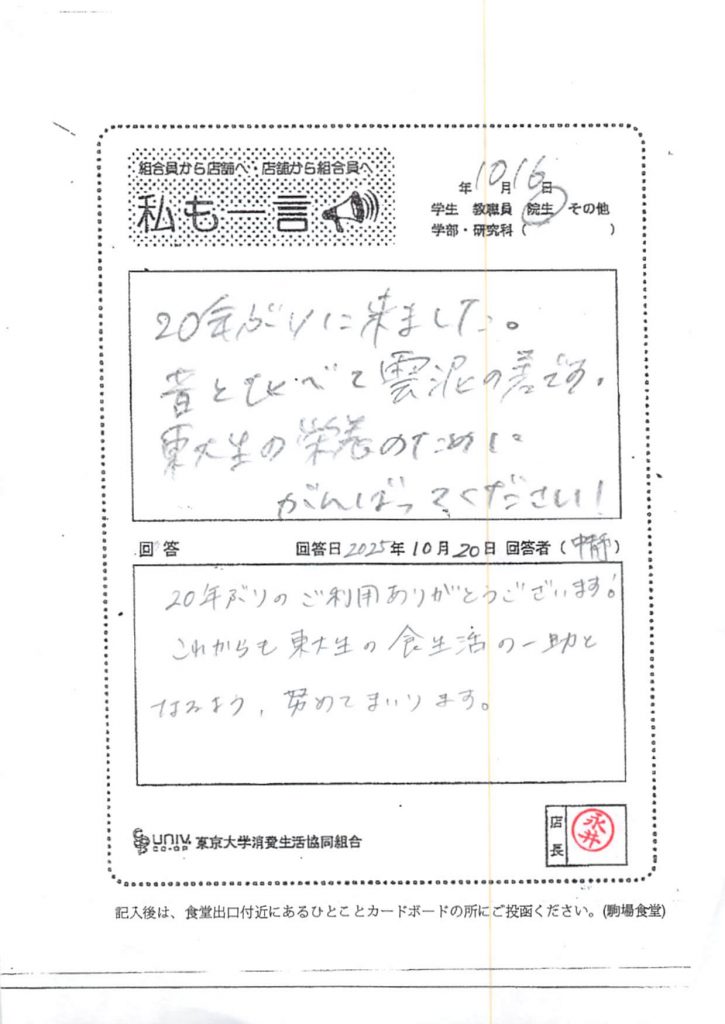 組合員から店舗へ・店舗から組合員へ
私も一言
年10月16日
学生 教職員 院生 その他
学部・研究科( )
20年ぶりに来ました。
昔とくらべて雲泥の差です。
東大生の栄養のために
がんばってください!
回答 回答日2025年10月20日 回答者(中静)
20年ぶりのご利用ありがとうございます!
これからも東大生の食生活の一助と
なるよう、努めてまいります。
UNIV. CO-OP 東京大学消費生活協同組合
店長 永井
記入後は、食堂出口付近にあるひとことカードボードの所にご投函ください。(駒場食堂)